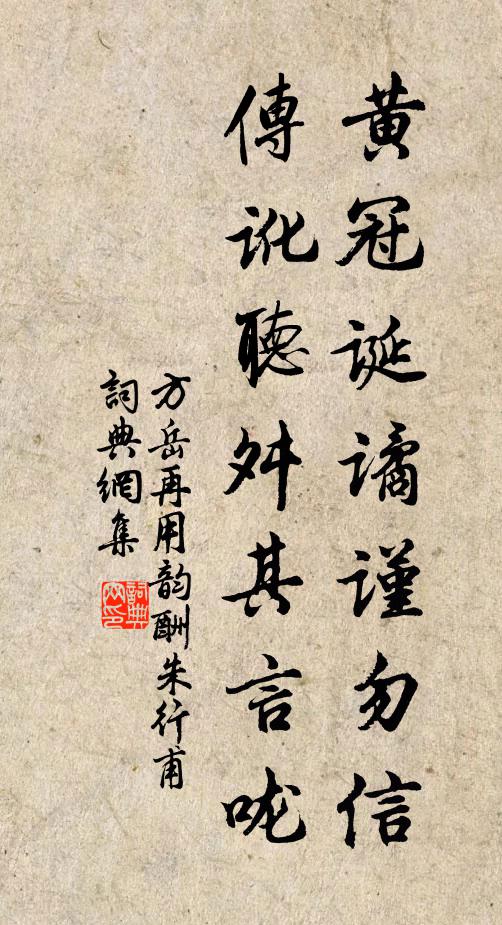 黄冠誕譎謹勿信
傳訛聽舛其言哤
方岳再用韵酬朱行甫
詞典網集
詞典網印